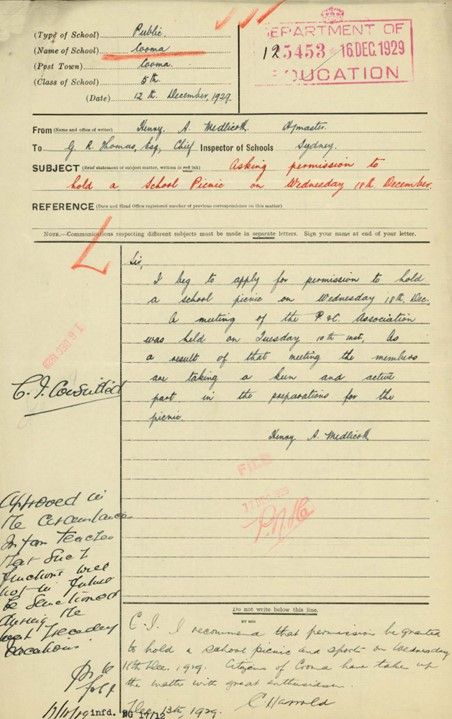 (Type of School) Public
(Name of School) Cooma
(Post Town) Cooma
(Class of School) 5th
(Date) 12th December, 1929
DEPARTMENT OF
125453 16 DEC. 1929
EDUCATION
From (Name and office of writer) Henry A. Medlicott H/master.
To G. R. Thomas, Esq, Chief Inspector of Schools Sydney.
SUBJECT (Brief statement of subject matter, written in red ink) Asking permission to
hold a School Picnic on Wednesday 18th December.
REFERENCE (Date and Head Office registered number of previous correspondence on this matter)
NOTE.—Communications respecting different subjects must be made in separate letters. Sign your name at end of your letter.
Sir,
I beg to apply for permission to hold
a school picnic on Wednesday 18th Dec.
A meeting of the P. & C. Association
was held on Tuesday 10th inst. As
a result of that meeting the members
are taking a keen and active
part in the preparations for the
picnic.
Henry A. Medlicott
16 DEC 1929
C. I. Consulted
FILE
17 DEC 1929
Approved in
the circumstances
Inform teacher
that such
functions will
not in future
be sanctioned
during the
last Tuesday
vacations
infd. 17/12
Do not write below this line.
C. I. I recommend that permission be granted
to hold a school picnic and sports on Wednesday
18th Dec. 1929. Citizens of Cooma have taken up
the matter with great enthusiasm.
Dec 13th, 1929. C Harrold